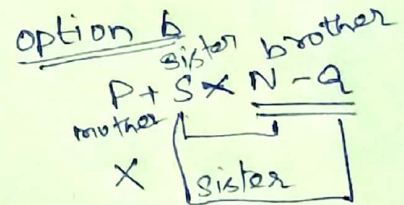 option b
sister brother
P + S × N - Q
mother
× sister